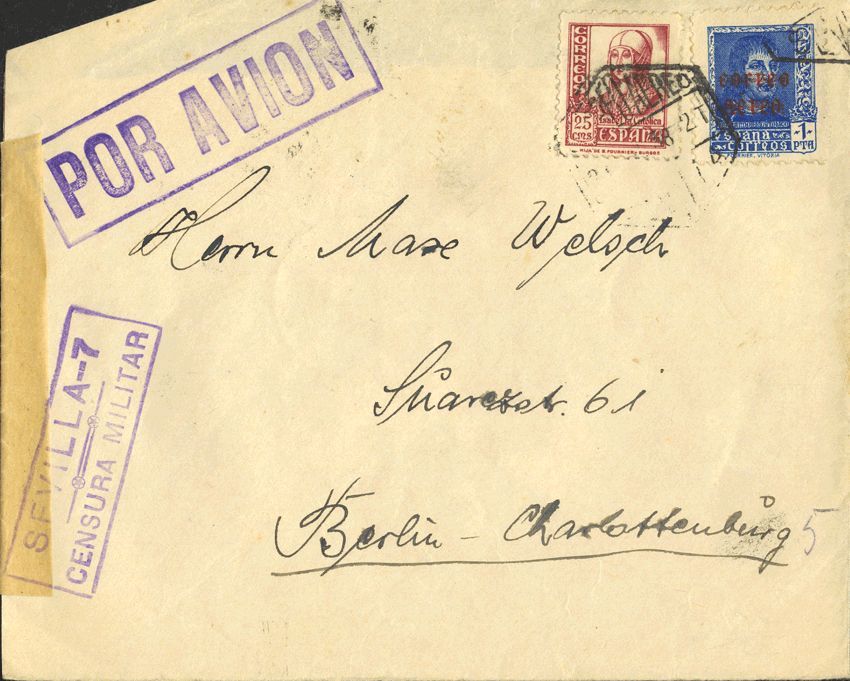 POR AVION
CORREOS
25
CTS
Isabel la Católica
ESPAÑA
HIJA DE B. FOURNIER-BURGOS
CORREO
AEREO
España
correos
1
PTA
FOURNIER, VITORIA
Herrn Maxe Welsch
Suarezstr. 61
Berlin - Charlottenburg 5
SEVILLA--7
CENSURA MILITAR